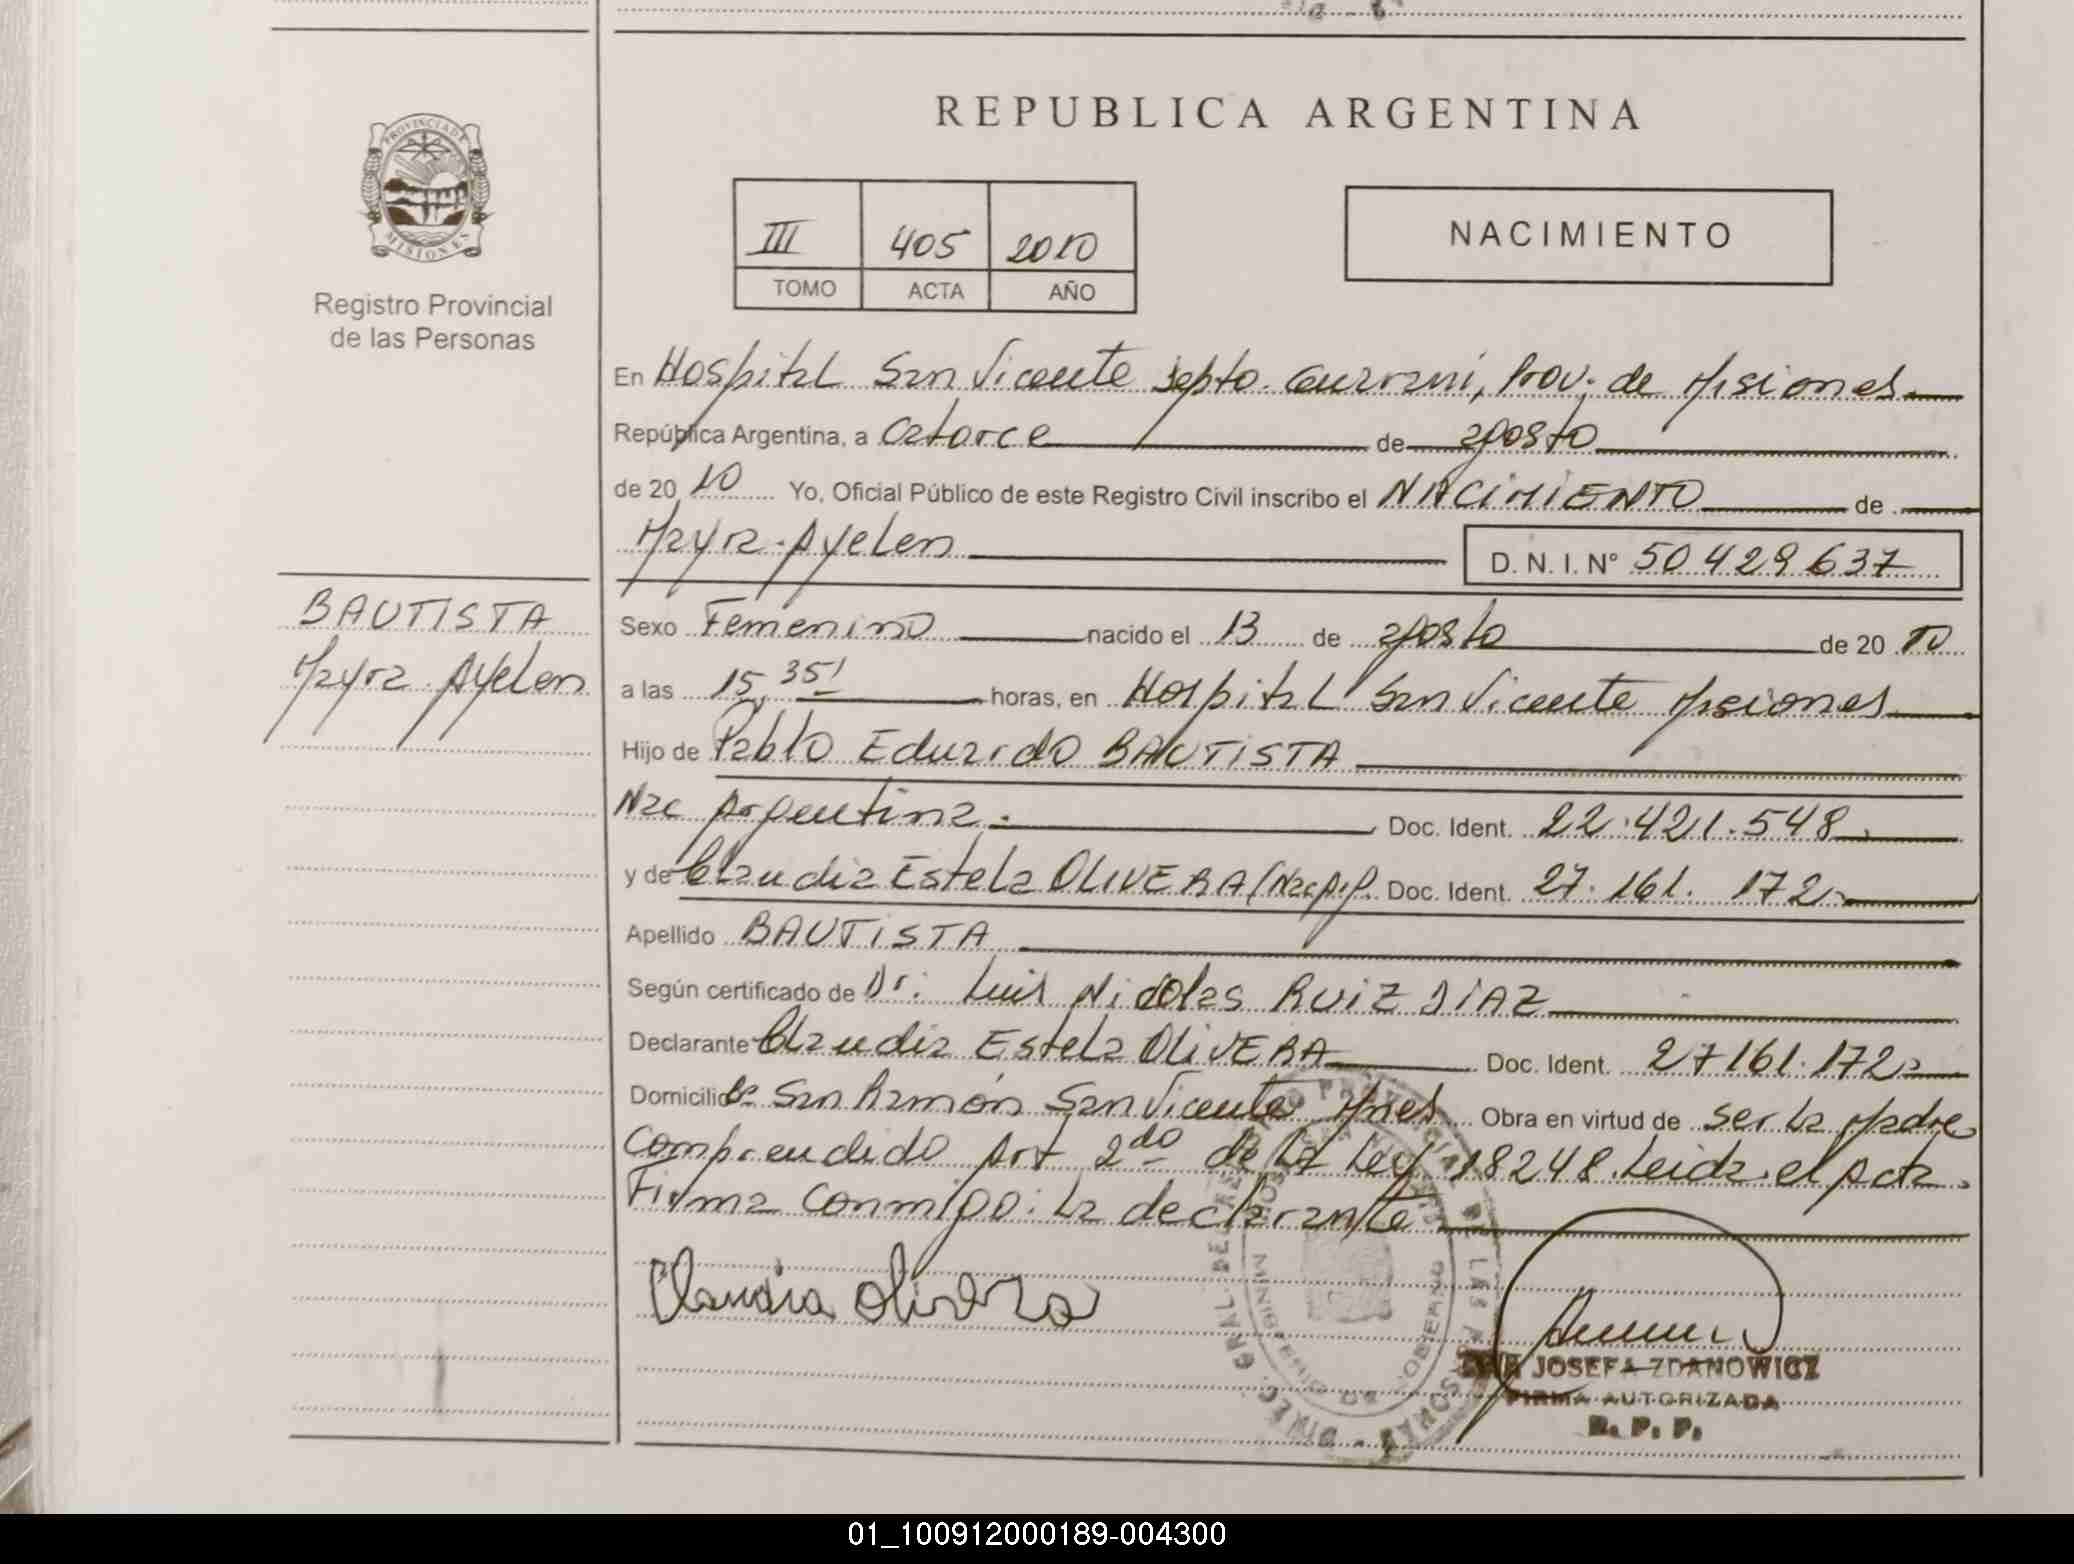 REPUBLICA ARGENTINA
PROVINCIA DE MISIONES
Registro Provincial
de las Personas
III 405 2010
TOMO ACTA AÑO
NACIMIENTO
En Hospital San Vicente Depto. Guarani, Prov. de Misiones
República Argentina, a Catorce de agosto
de 2010 Yo, Oficial Público de este Registro Civil inscribo el NACIMIENTO de
Mayra Ayelen D. N. I. N° 50429637
BAUTISTA
Mayra Ayelen
Sexo Femenino nacido el 13 de agosto de 2010
a las 15,35' horas, en Hospital San Vicente Misiones
Hijo de Pablo Eduardo BAUTISTA
Nac Argentina. Doc. Ident. 22.421.548
y de Claudia Estela OLIVERA (Nac Arg. Doc. Ident. 27.161.172
Apellido BAUTISTA
Según certificado de Dr. Luis Nicolas RUIZ DIAZ
Declarante Claudia Estela OLIVERA Doc. Ident. 27161.172
Domicilio San Ramón San Vicente Mnes Obra en virtud de ser la Madre
Comprendido Art 2do de la Ley 18248. Leida el Acta.
Firma Conmigo: la declarante
Claudia Olivera
JOSEFA ZDANOWICZ
FIRMA AUTORIZADA
R. P. P.
01_100912000189-004300